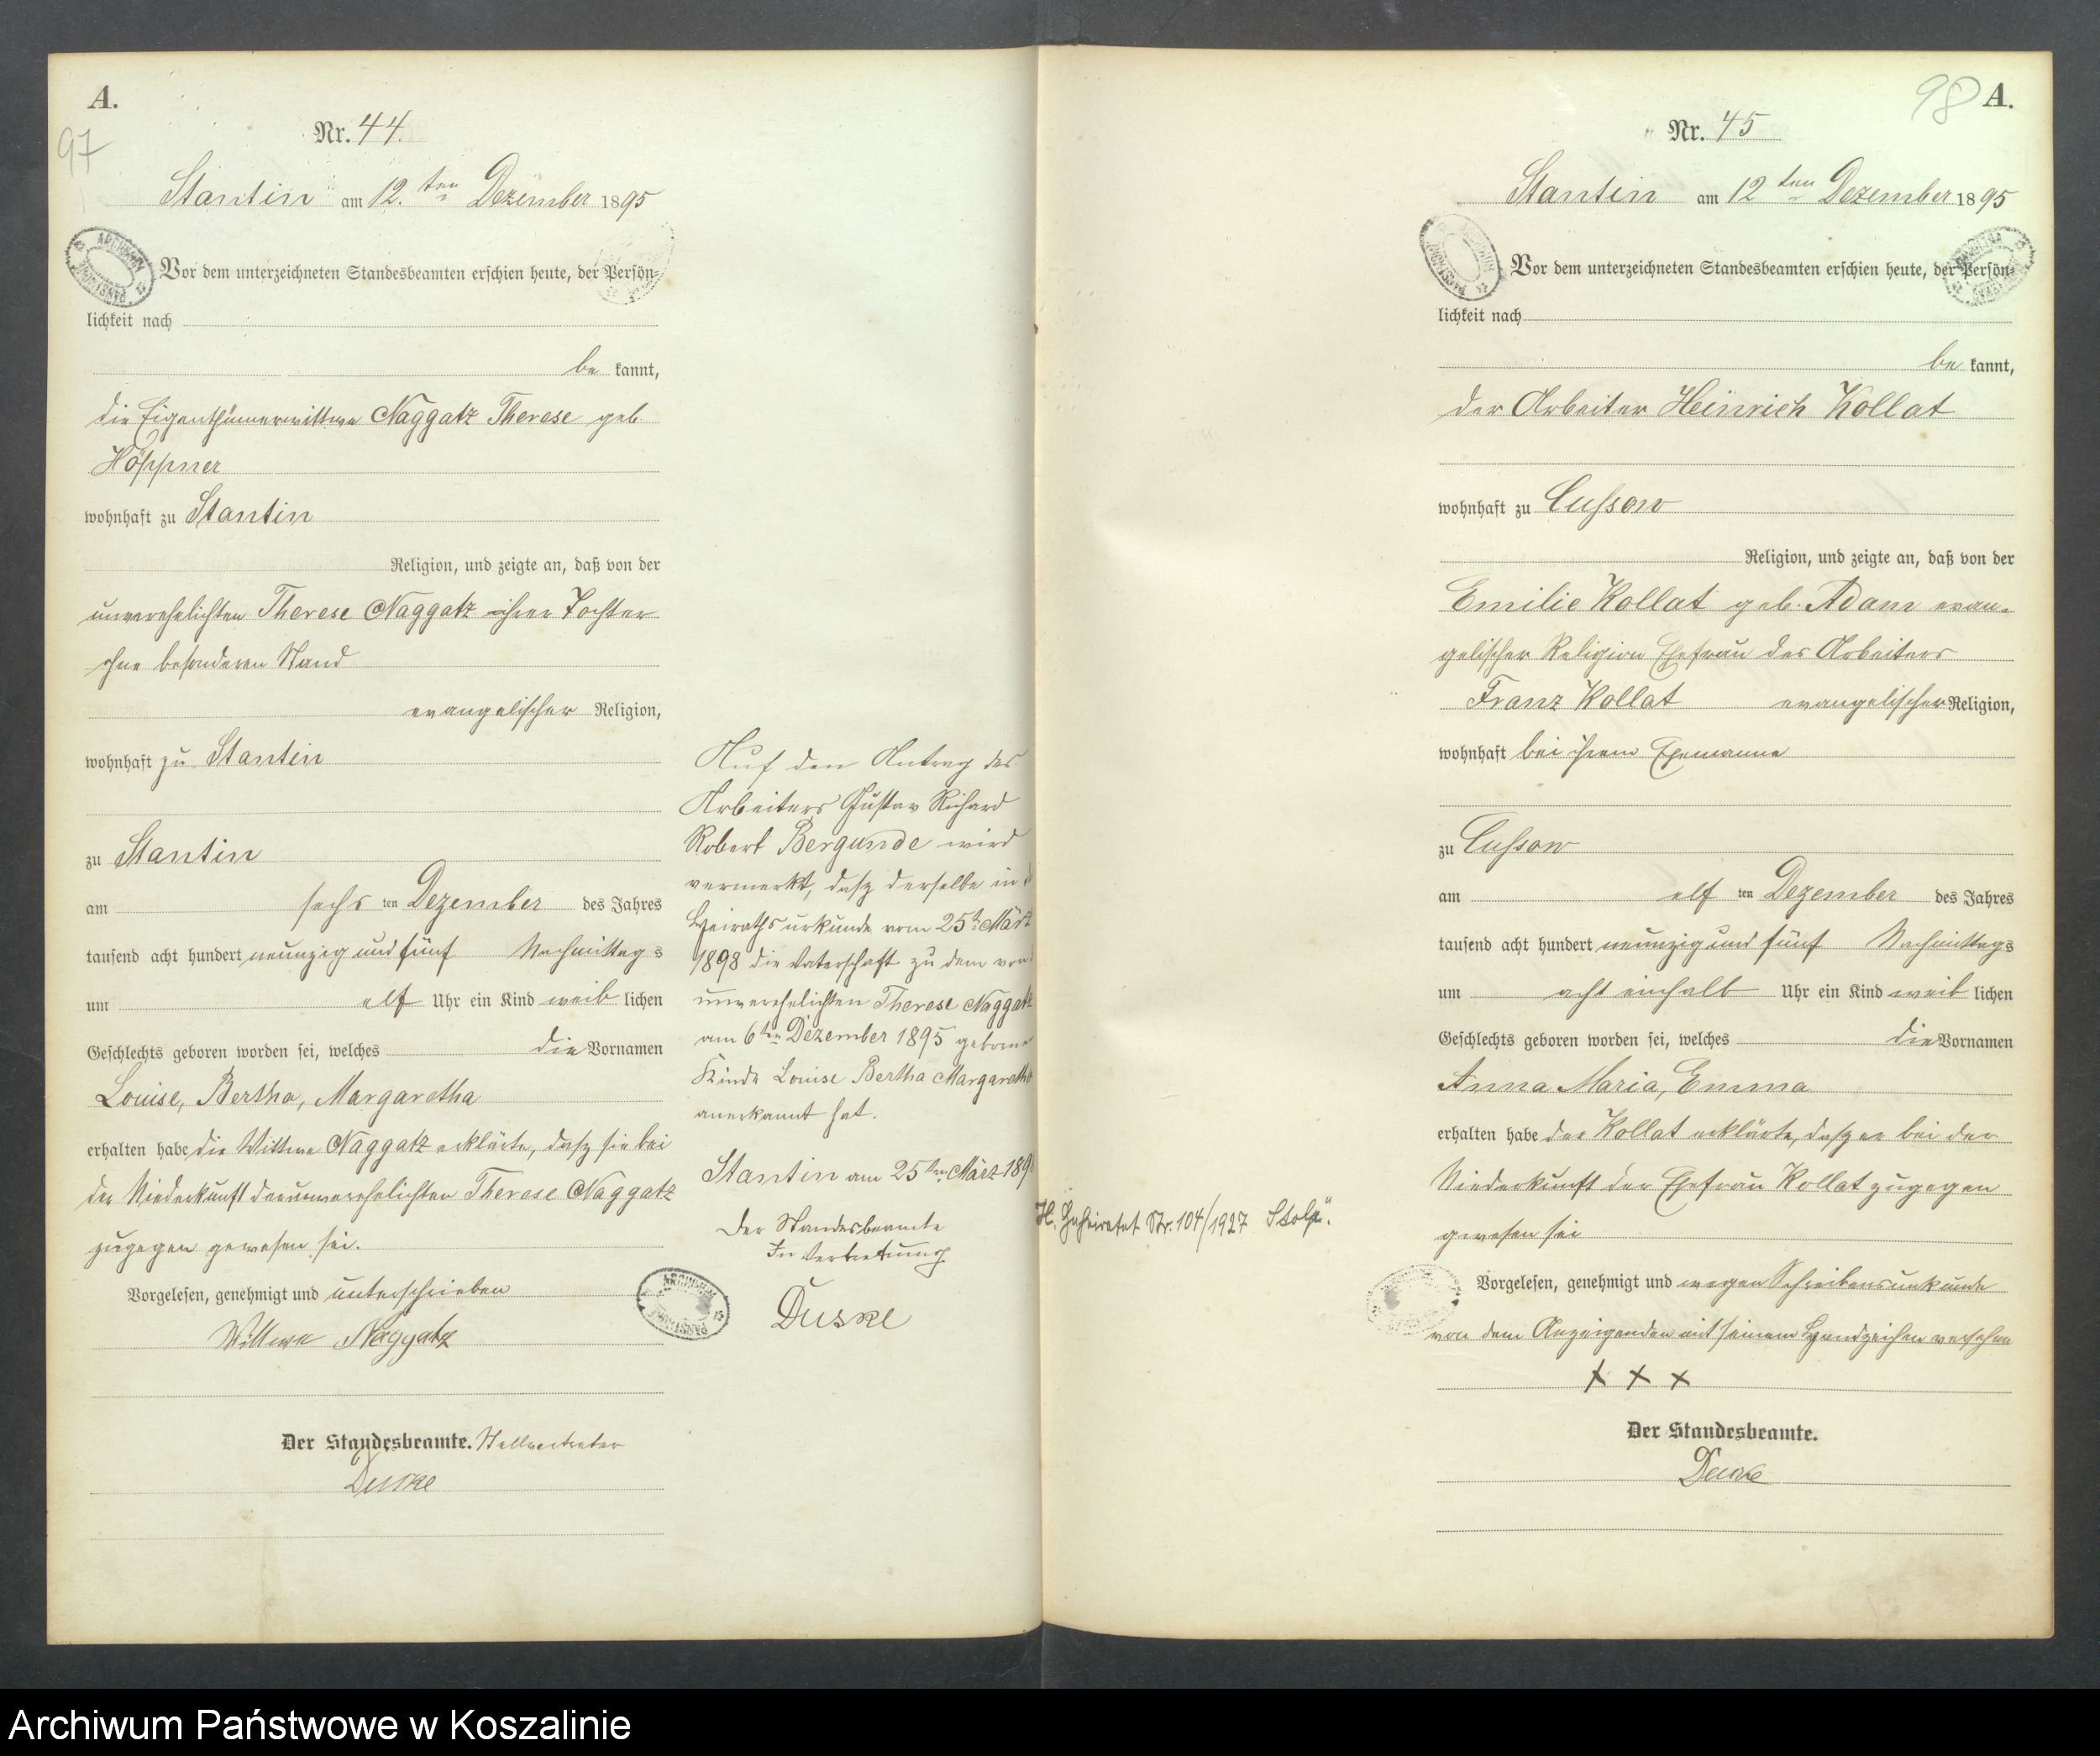 A.
97
Nr. 44.
Stantin am 12.ten Dezember 1895
Vor dem unterzeichneten Standesbeamten erschien heute, der Persön-
lichkeit nach
be kannt,
die Eigenthümerwittwe Naggatz Therese geb
Höppner
wohnhaft zu Stantin
Religion, und zeigte an, daß von der
unverehelichten Therese Naggatz ihrer Tochter
ohne besonderen Stand
evangelischer Religion,
wohnhaft zu Stantin
zu Stantin
am sechs ten Dezember des Jahres
tausend acht hundert neunzig und fünf Nachmittag s
um elf Uhr ein Kind weib lichen
Geschlechts geboren worden sei, welches die Vornamen
Louise, Bertha, Margaretha
erhalten habe die Wittwe Naggatz erklärte, dasz sie bei
der Niederkunft der unverehelichten Therese Naggatz
zugegen gewesen sei.
Vorgelesen, genehmigt und unterschrieben
Wittwe Naggatz
Der Standesbeamte. Stellvertreter
Duske
Auf den Antrag des
Arbeiters Gustav Richard
Robert Bergunde wird
vermerkt, dasz derselbe in
Heirathsurkunde vom 25t März
1898 die Vaterschaft zu dem von
unverehelichten Therese Naggatz
am 6ten Dezember 1895 geborne
Kinde Louise Bertha Margaretha
anerkannt hat.
Stantin am 25ten März 189
Der Standesbeamte
In Vertretung
Duske
ARCHIWUM PAŃSTWOWE
98
A.
Nr. 45
Stantin am 12 ten Dezember 1895
Vor dem unterzeichneten Standesbeamten erschien heute, der Persön-
lichkeit nach
be kannt,
der Arbeiter Heinrich Kollat
wohnhaft zu Cussow
Religion, und zeigte an, daß von der
Emilie Kollat geb. Adam evan-
gelischer Religion Ehefrau des Arbeiters
Franz Kollat evangelischer Religion,
wohnhaft bei ihrem Ehemanne
zu Cussow
am elf ten Dezember des Jahres
tausend acht hundert neunzig und fünf Nachmittags
um acht einhalb Uhr ein Kind weib lichen
Geschlechts geboren worden sei, welches die Vornamen
Anna Maria, Emma
erhalten habe der Kollat erklärte, dasz er bei der
Niederkunft der Ehefrau Kollat zugegen
gewesen sei
Vorgelesen, genehmigt und wegen Schreibensunkunde
von dem Anzeigenden mit seinem Handzeichen versehen
x x x
Der Standesbeamte.
Duske
H. Geheiratet Nr. 104/1927 Stolp".
Archiwum Państwowe w Koszalinie